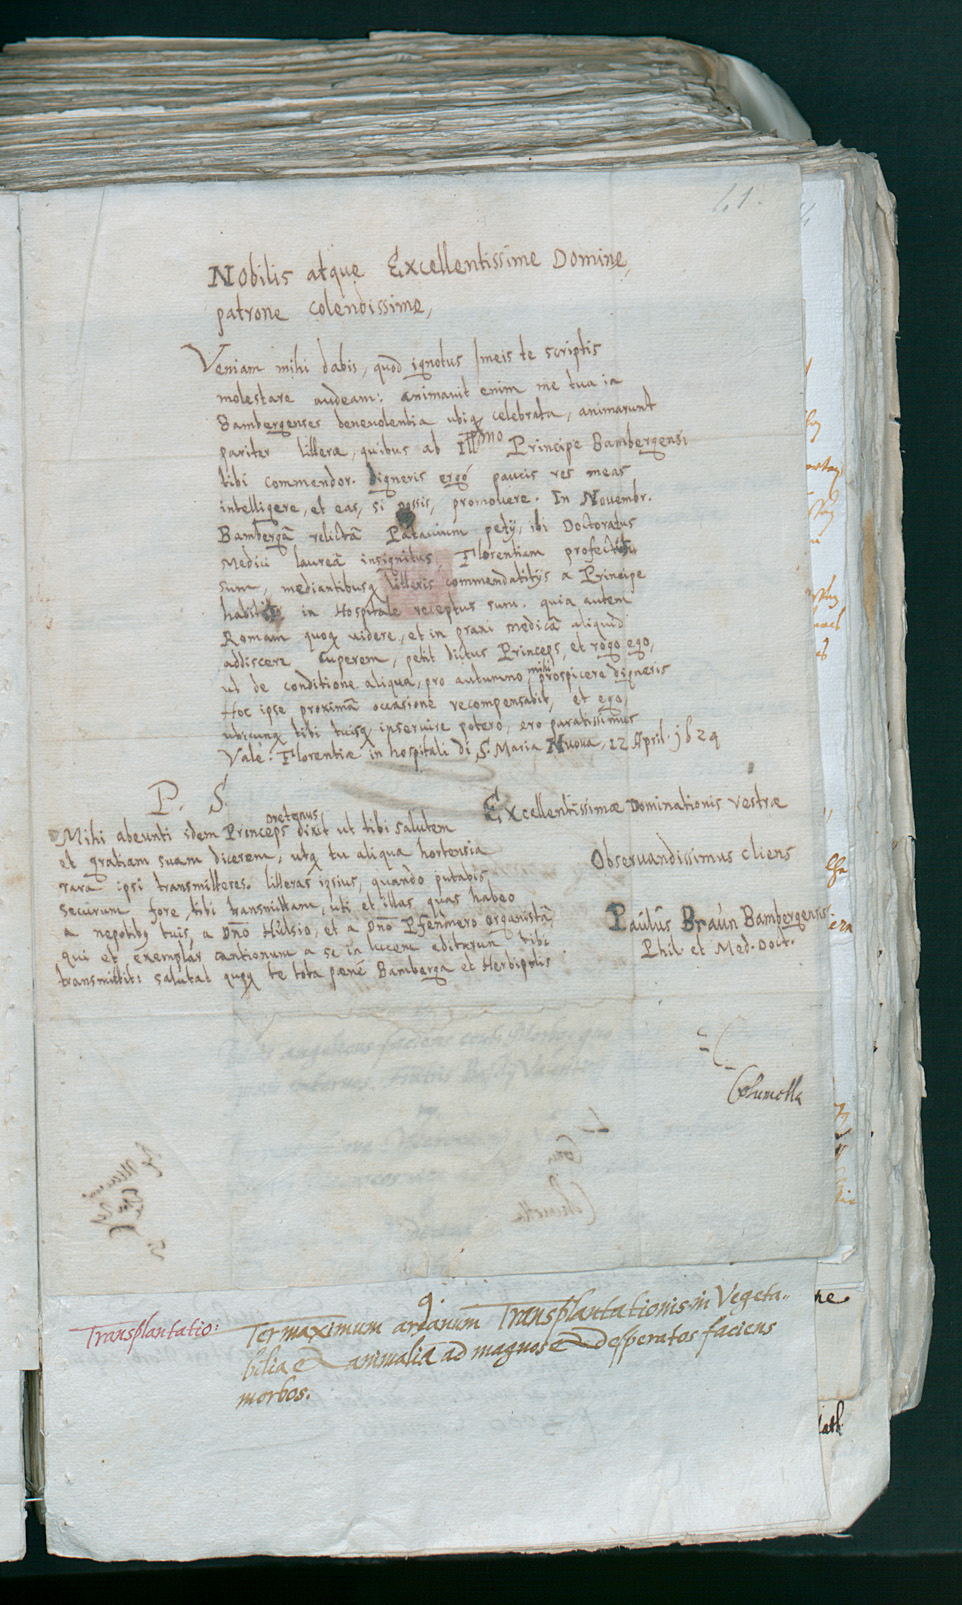 41.
Nobilis atque Excellentissime Domine,
patrone colendissime,
Veniam mihi dabis, quod ignotus meis te scriptis
molestare audeam: animauit enim me tua in
Bambergenses beneuolentia ubiq celebrata, animarunt
pariter litteræ, quibus ab Illmo Principe Bambergensi
tibi commendor. digneris ergó paucis res meas
intelligere, et eas, si possis, promouere. In Novembr.
Bambergâ relictâ Patauium petij, ibi Doctoratus
Medici laureâ insignitus, Florentiam profectus
sum, mediantibusq litteris commendatitijs a Principe
habitis in Hospitale receptus sum. quia autem
Romam quoq uidere, et in praxi medicâ aliquid
addiscere cuperem, petit dictus Princeps, et rogo ego,
ut de conditione aliqua, pro autumno mihi prospicere digneris
Hoc ipse proximâ occasione recompensabit, et ego,
ubicunq tibi tuisq inseruire potero, ero paratissimus
Vale. Florentiæ in hospitali di S. Maria Nuoua, 12 April. 1629
Excellentissimæ Dominationis Vestræ
Obseruandissimus cliens
Paulus Braun Bambergensis
Phil. et Med. Doct.
P. S.
Mihi abeunti idem Princeps oretenus dixit ut tibi salutem
et gratiam suam dicerem, utq tu aliqua hortensia
rara ipsi transmitteres. litteras ipsius, quando putabis
securum fore, tibi transmittam, uti et illas, quas habeo
a nepotibq tuis, a Dno Hulsio, et a Dno Pfenmero organistâ,
qui et exemplar cantionum a se in lucem editarum tibi
transmittit: salutat quoq te tota pæné Bamberga et Herbipolis
Columella
Transplantatio:
9.
Ter maximum arcanum Transplantationis in Vegeta-
bilia et animalia ad magnos et desperatos faciens
morbos.